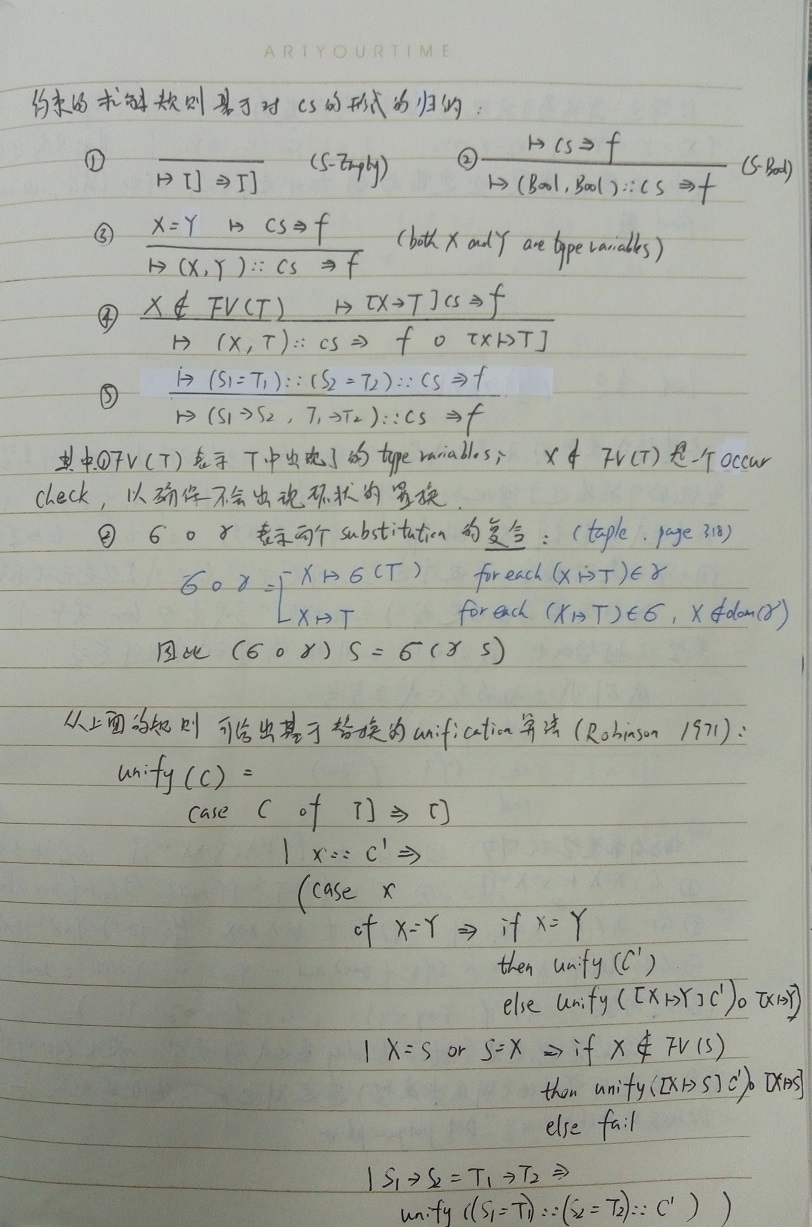 ARTYOURTIME
约束的求解规则基于对 CS 的形式的归约:
① ⊢> [] ⇒ [] (S-Empty) ② ⊢> CS ⇒ f / ⊢> (Bool, Bool) :: CS ⇒ f (S-Bool)
③ X = Y ⊢> CS ⇒ f / ⊢> (X, Y) :: CS ⇒ f (both X and Y are type variables)
④ X ∉ FV(T) ⊢> [X→T] CS ⇒ f
⊢> (X, T) :: CS ⇒ f o [X↦T]
⑤ ⊢> (S₁=T₁) :: (S₂=T₂) :: CS ⇒ f
⊢> (S₁→S₂, T₁→T₂) :: CS ⇒ f
其中①FV(T) 表示 T 中出现了的 type variables; X ∉ FV(T) 是一个 occur
check, 以确保不会出现环状的置换.
② σ o γ 表示两个 substitution 的复合: (taple. page 318)
σ o γ = [ X ↦ σ(T) for each (X↦T) ∈ γ
X ↦ T for each (X↦T) ∈ σ, X ∉ dom(γ)
因此 (σ o γ) S = σ(γ S)
从上面的规则 可给出基于替换的 unification 算法 (Robinson 1971):
unify(C) =
case C of [] ⇒ []
| x :: C' ⇒
(case x
of X=Y ⇒ if X = Y
then unify(C')
else unify([X↦Y]C') o [X↦Y]
| X=S or S=X ⇒ if X ∉ FV(S)
then unify([X↦S]C') o [X↦S]
else fail
| S₁→S₂ = T₁→T₂ ⇒
unify((S₁=T₁) :: (S₂=T₂) :: C') )